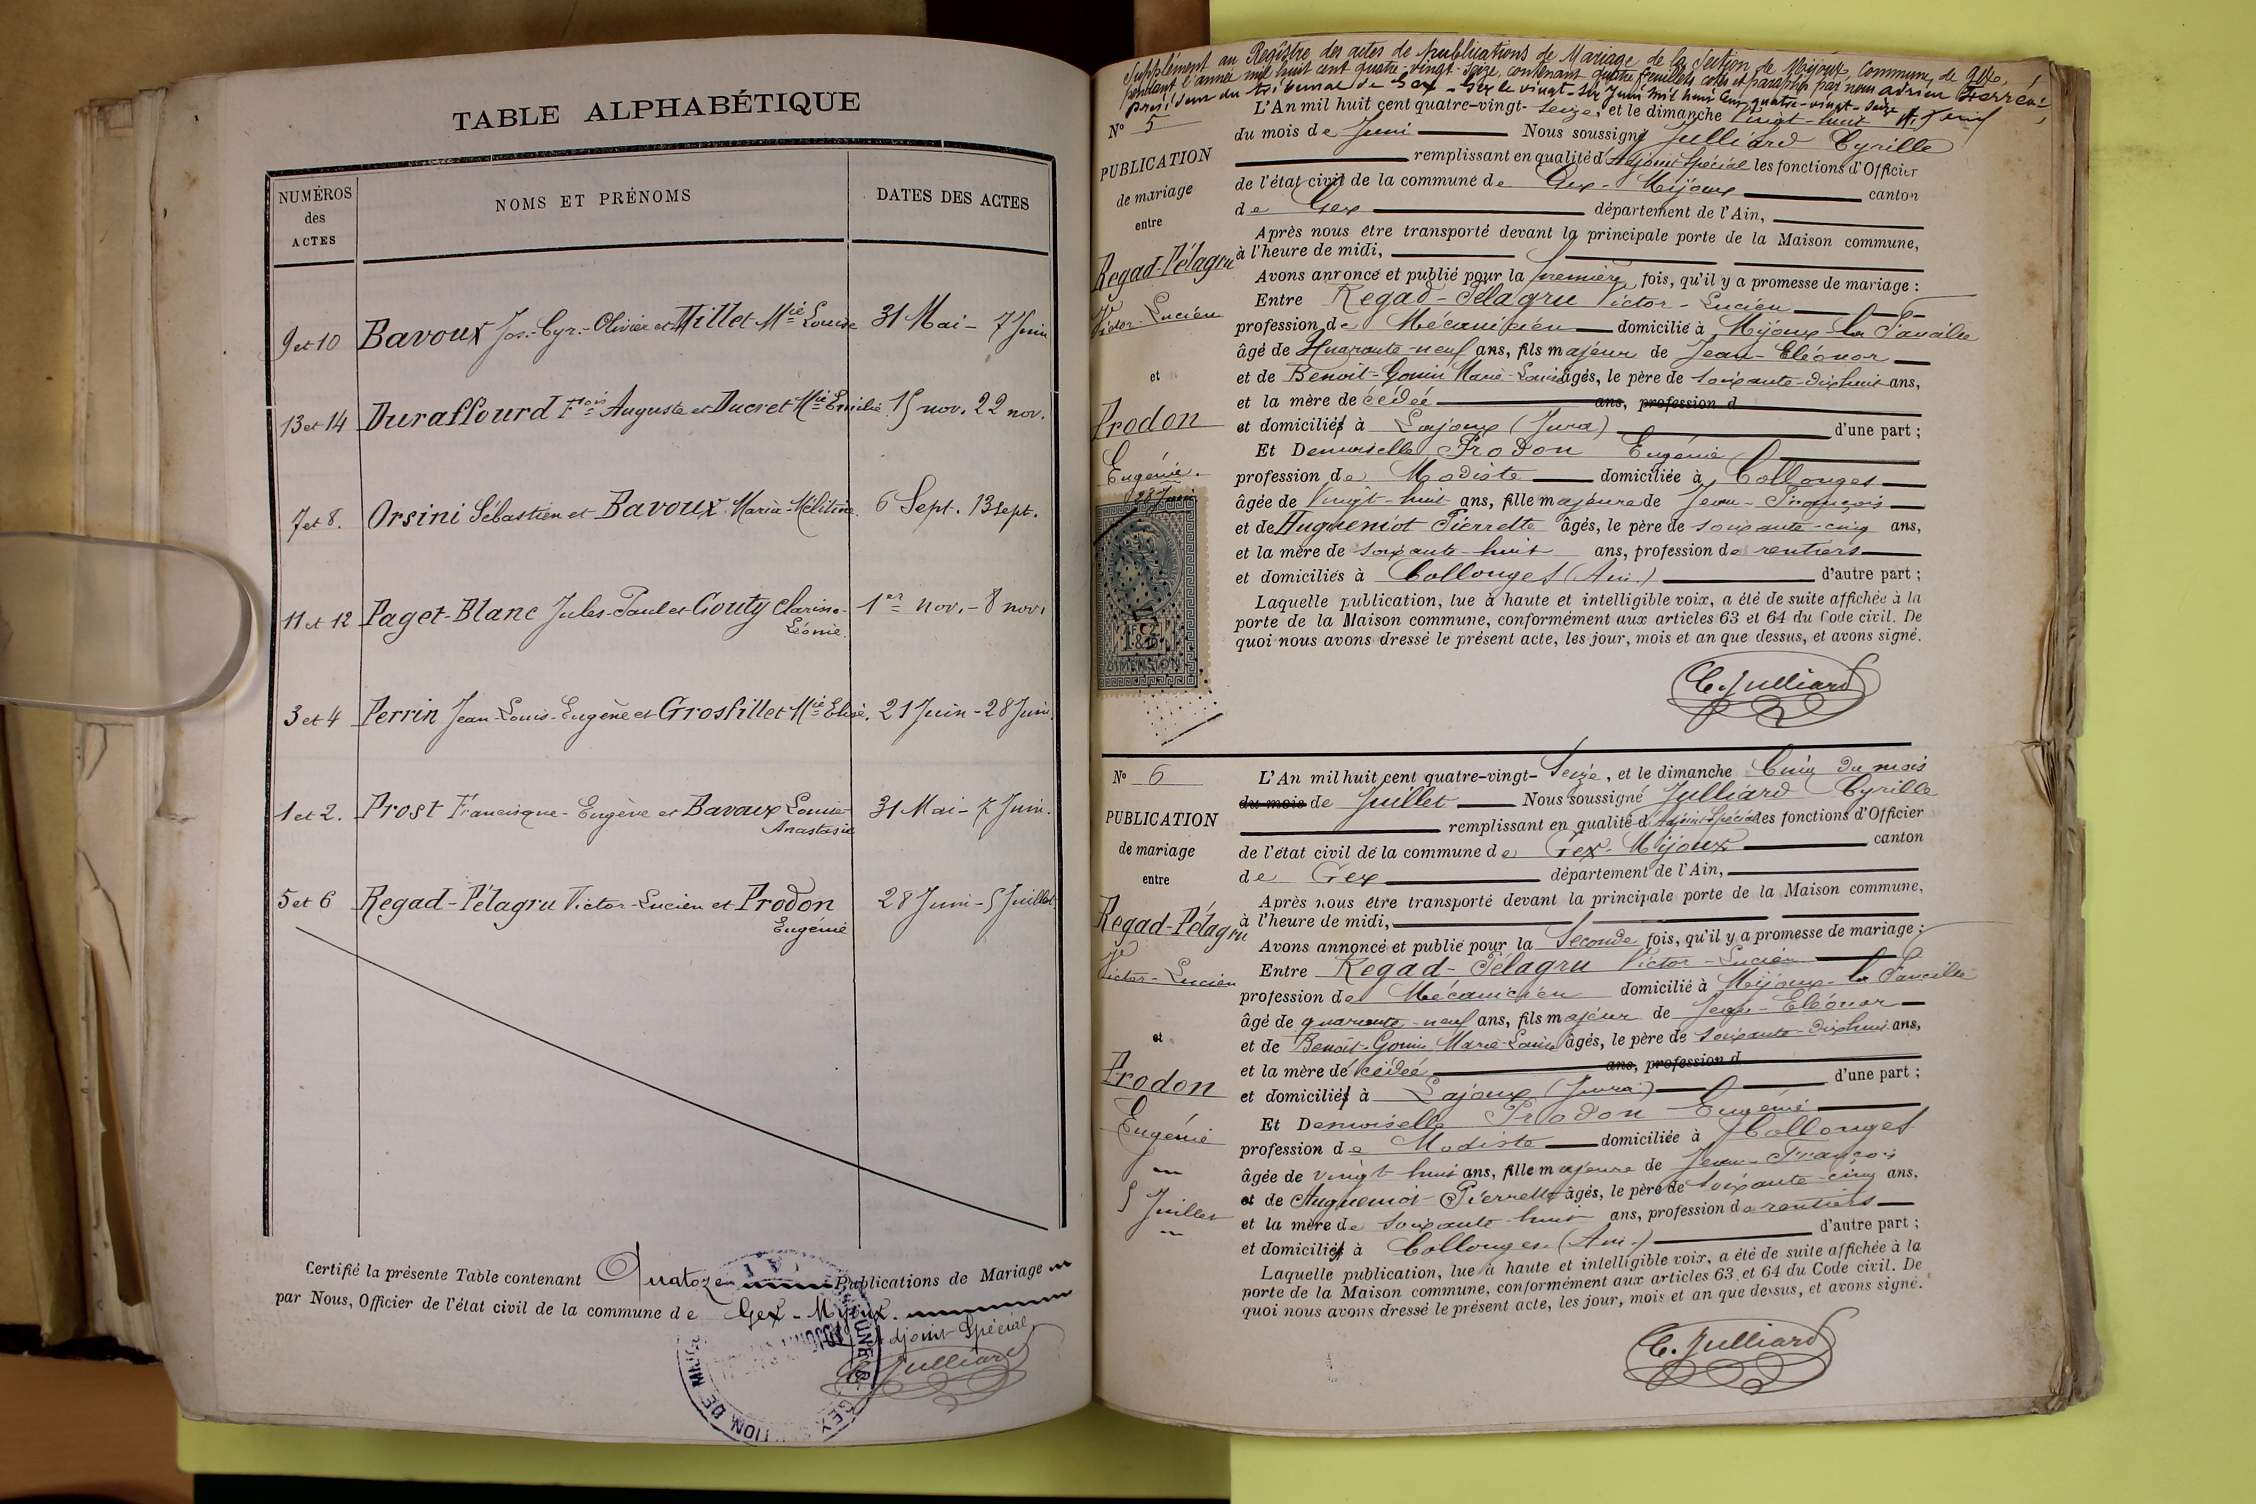 TABLE ALPHABÉTIQUE
NUMÉROS des ACTES
NOMS ET PRÉNOMS
DATES DES ACTES
9 et 10 Bavoux Jos.-Cyr.-Olivier et Millet Mie Louise 31 Mai - 7 Juin
13 et 14 Duraffourd Fçois Auguste et Ducret Mie Emilie 15 nov. 22 nov.
7 et 8. Orsini Sébastien et Bavoux Marie-Mélitine. 6 Sept. 13 sept.
11 et 12 Paget-Blanc Jules-Paul et Gouty Clarine- 1er nov. - 8 nov.
Léonie.
3 et 4 Perrin Jean-Louis-Eugène et Grosfillet Mie Elisé. 21 Juin - 28 Juin.
1 et 2. Prost Francisque-Eugène et Bavoux Louise 31 Mai - 7 Juin.
Anastasie
5 et 6 Regad-Pélagru Victor-Lucien et Prodon 28 Juin - 5 Juillet.
Eugénie
Certifié la présente Table contenant Quatorze Publications de Mariage
par Nous, Officier de l'état civil de la commune de Gex-Mijoux.
Adjoint Spécial
C. Julliard
Supplément au Registre des actes de publications de Mariage de la Section de Mijoux, commune de Gex,
pendant l'année mil huit cent quatre-vingt-seize, contenant quatre feuillets cotés et paraphés par nous Adrien Ferréol
Président du tribunal de Gex - Gex le vingt-six Juin mil huit cent quatre-vingt-seize
No 5
PUBLICATION
de mariage
entre
Regad-Pélagru
Victor-Lucien
et
Prodon
Eugénie.
28 Juin
DIMENSION
L'An mil huit cent quatre-vingt-seize, et le dimanche vingt-huit
du mois de Juin Nous soussigné Julliard Cyrille
remplissant en qualité d'Adjoint Spécial les fonctions d'Officier
de l'état civil de la commune de Gex-Mijoux canton
de Gex département de l'Ain,
Après nous être transporté devant la principale porte de la Maison commune,
à l'heure de midi,
Avons annoncé et publié pour la première fois, qu'il y a promesse de mariage :
Entre Regad-Pélagru Victor-Lucien
profession de Mécanicien domicilié à Mijoux-la Faucille
âgé de Quarante-neuf ans, fils majeur de Jean-Eléonor
et de Benoit-Gonin Marie-Louise âgés, le père de soixante-dix huit ans,
et la mère de cédée ans, profession d
et domiciliés à Lajoux (Jura) d'une part ;
Et Demoiselle Prodon Eugénie
profession de Modiste domiciliée à Collonges
âgée de vingt-huit ans, fille majeure de Jean-François
et de Hugueniot Pierrette âgés, le père de soixante-cinq ans,
et la mère de soixante-huit ans, profession de rentiers
et domiciliés à Collonges (Ain.) d'autre part ;
Laquelle publication, lue à haute et intelligible voix, a été de suite affichée à la
porte de la Maison commune, conformément aux articles 63 et 64 du Code civil. De
quoi nous avons dressé le présent acte, les jour, mois et an que dessus, et avons signé.
C. Julliard
No 6
PUBLICATION
de mariage
entre
Regad-Pélagru
Victor-Lucien
et
Prodon
Eugénie
5 Juillet
L'An mil huit cent quatre-vingt-Seize, et le dimanche Cinq du mois
du mois de Juillet Nous soussigné Julliard Cyrille
remplissant en qualité d'Adjoint Spécial les fonctions d'Officier
de l'état civil de la commune de Gex-Mijoux canton
de Gex département de l'Ain,
Après nous être transporté devant la principale porte de la Maison commune,
à l'heure de midi,
Avons annoncé et publié pour la Seconde fois, qu'il y a promesse de mariage :
Entre Regad-Pélagru Victor-Lucien
profession de Mécanicien domicilié à Mijoux-la Faucille
âgé de quarante-neuf ans, fils majeur de Jean-Eléonor
et de Benoit-Gonin Marie-Louise âgés, le père de soixante-dix huit ans,
et la mère de cédée ans, profession d
et domiciliés à Lajoux (Jura) d'une part ;
Et Demoiselle Prodon Eugénie
profession de Modiste domiciliée à Collonges
âgée de vingt-huit ans, fille majeure de Jean-François
et de Hugueniot Pierrette âgés, le père de soixante-cinq ans,
et la mère de soixante-huit ans, profession de rentiers
et domiciliés à Collonges (Ain.) d'autre part ;
Laquelle publication, lue à haute et intelligible voix, a été de suite affichée à la
porte de la Maison commune, conformément aux articles 63 et 64 du Code civil. De
quoi nous avons dressé le présent acte, les jour, mois et an que dessus, et avons signé.
C. Julliard